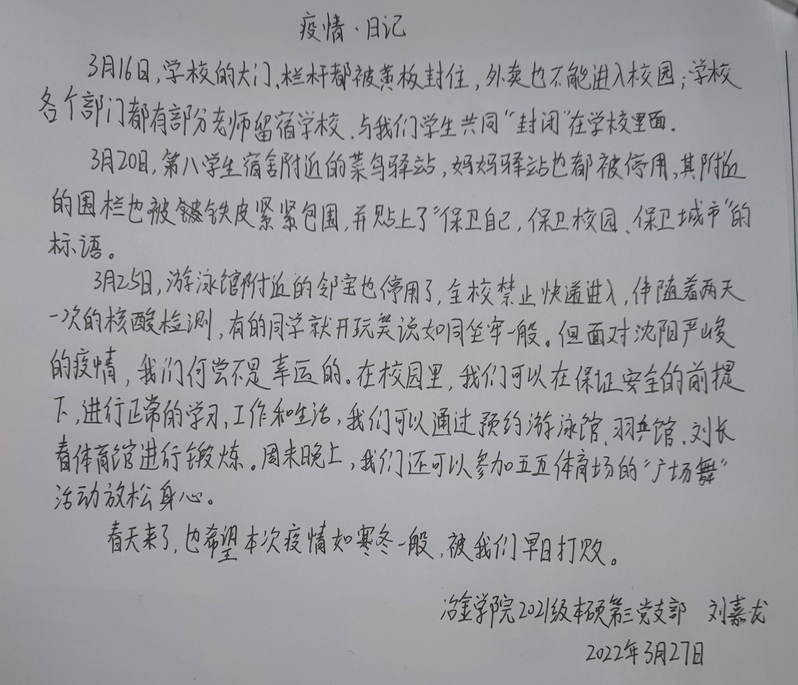 疫情·日记
3月16日,学校的大门、栏杆都被黄板封住,外卖也不能进入校园;学校
各个部门都有部分老师留宿学校、与我们学生共同“封闭”在学校里面.
3月20日,第八学生宿舍附近的菜鸟驿站,妈妈驿站也都被停用,其附近
的围栏也被铁皮紧紧包围,并贴上了“保卫自己,保卫校园、保卫城市”的
标语。
3月25日,游泳馆附近的邻宝也停用了,全校禁止快递进入,伴随着两天
一次的核酸检测,有的同学就开玩笑说如同坐牢一般。但面对沈阳严峻
的疫情,我们何尝不是幸运的。在校园里,我们可以在保证安全的前提
下,进行正常的学习、工作和生活,我们可以通过预约游泳馆、羽乒馆、刘长
春体育馆进行锻炼。周末晚上,我们还可以参加五五体育场的“广场舞”
活动放松身心。
春天来了,也希望本次疫情如寒冬一般,被我们早日打败。
冶金学院2021级本硕第三党支部 刘嘉龙
2022年3月27日